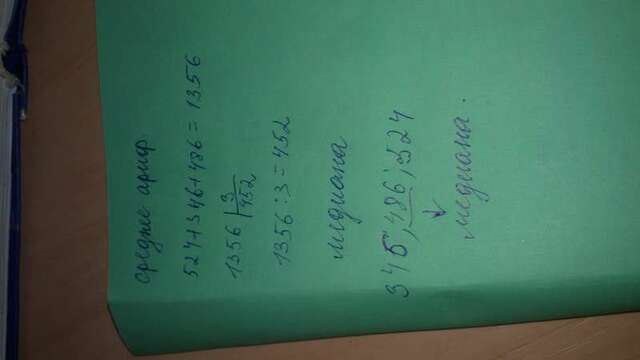 среднее арифм.
524+346+486=1356
1356 | 3
452
1356:3=452
медиана
346; 486; 524
медиана.